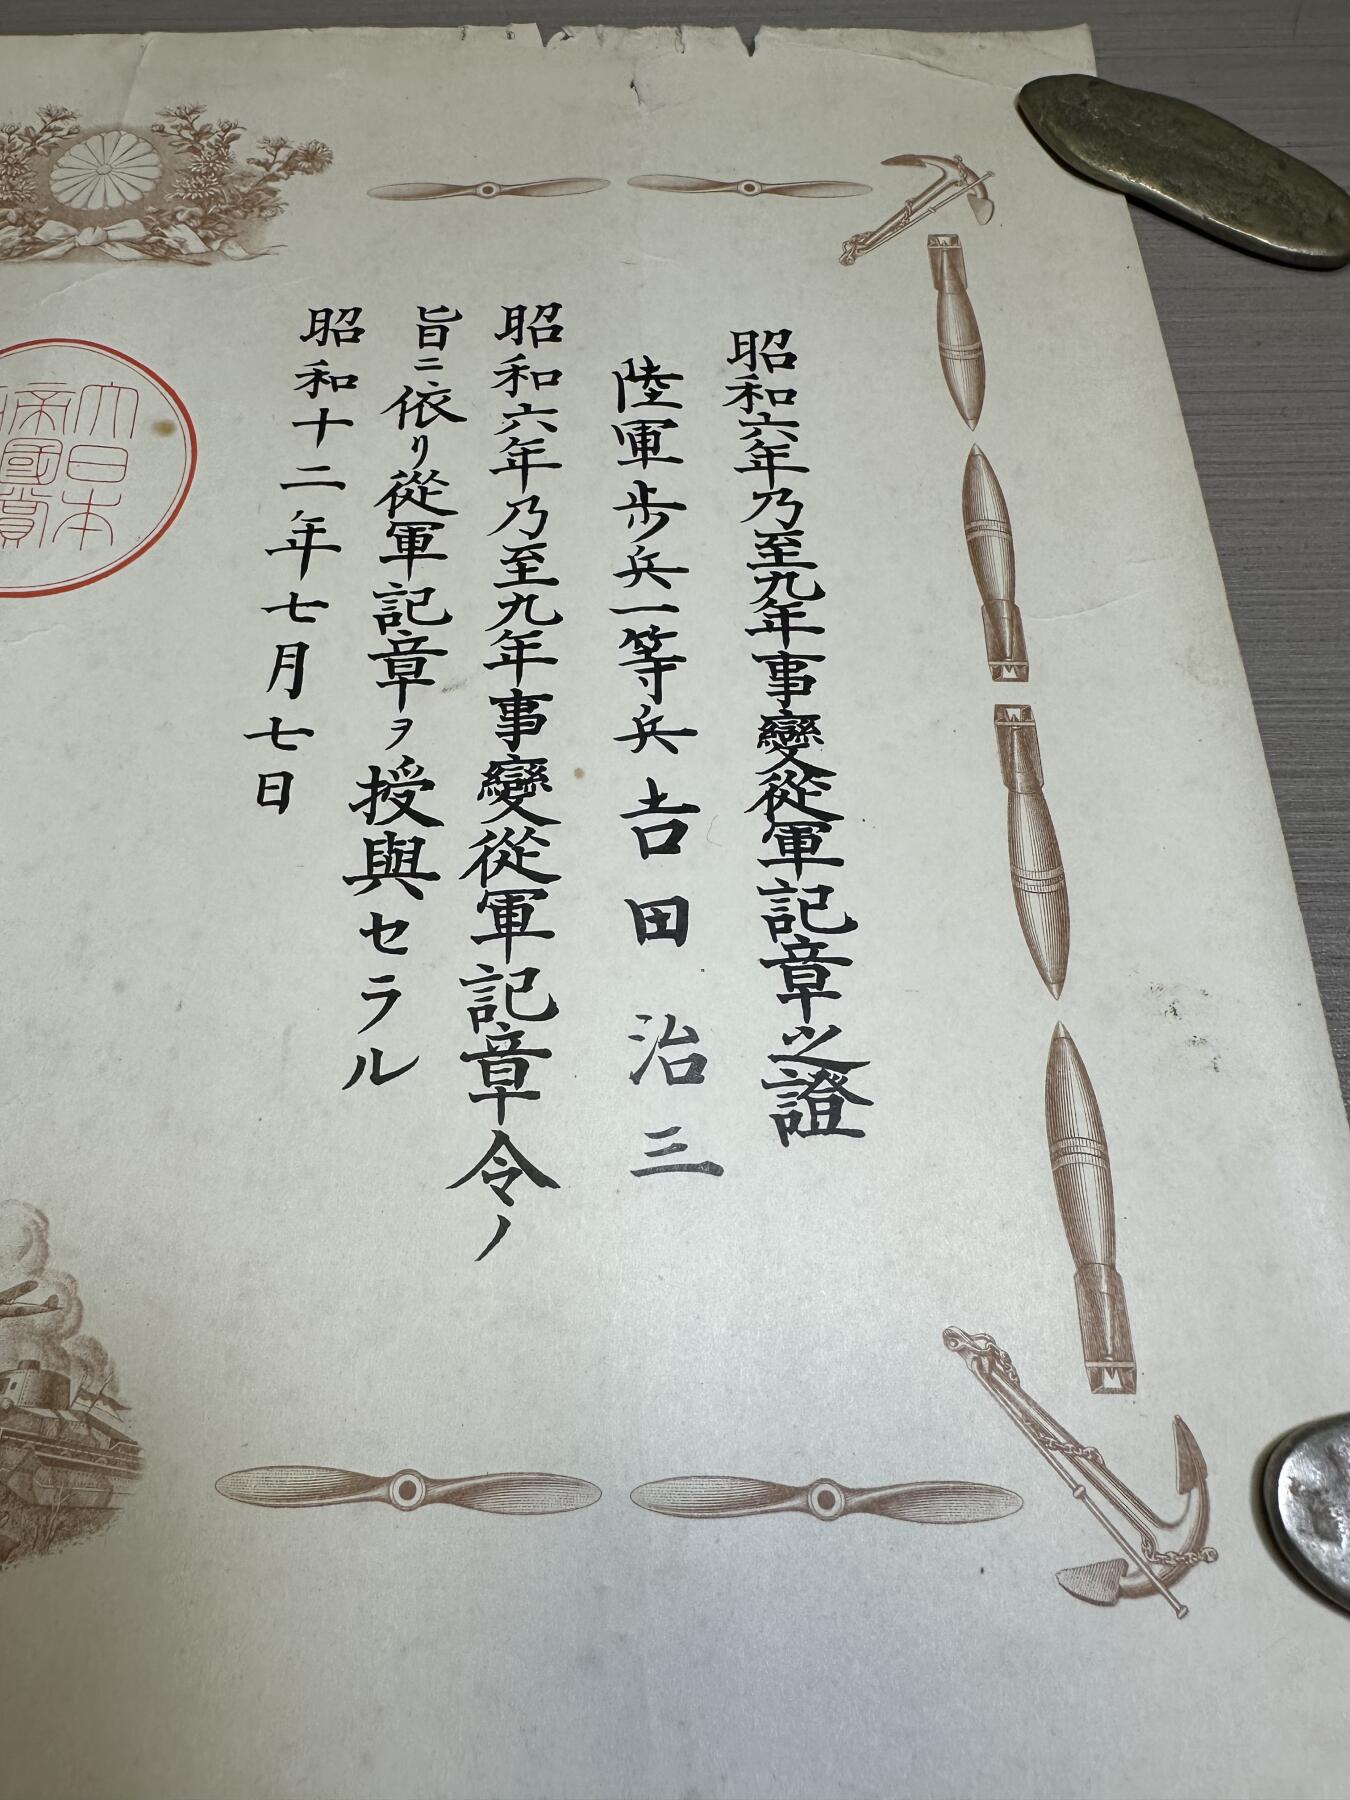 昭和六年乃至九年事變從軍記章之證
陸軍歩兵一等兵吉田治三
昭和六年乃至九年事變從軍記章令ノ
旨ニ依リ從軍記章ヲ授與セラル
昭和十二年七月七日
大日本
帝國賞